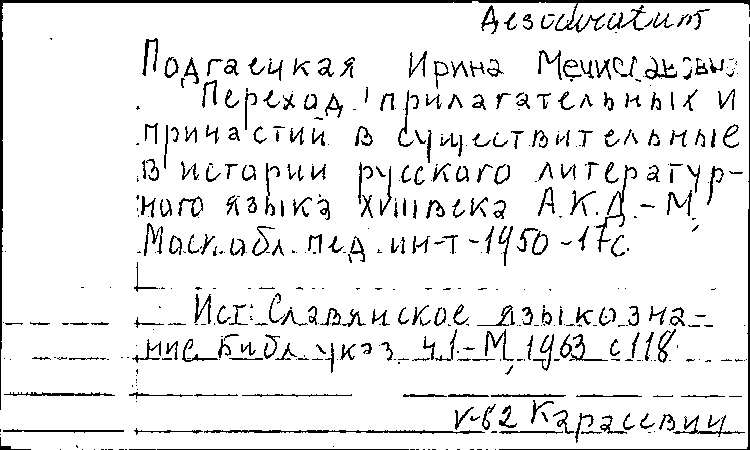 Desideratum
Подгаецкая Ирина Мечиславовна
Переход прилагательных и
причастий в существительные
в истории русского литератур-
ного языка XVIII века А.К.Д. - М,
Моск. обл. пед. ин-т - 1950 - 17с.
Ист: Славянское языкозна-
ние. Библ. указ. ч.1 - М, 1963 с 118
V-82 Карасевич